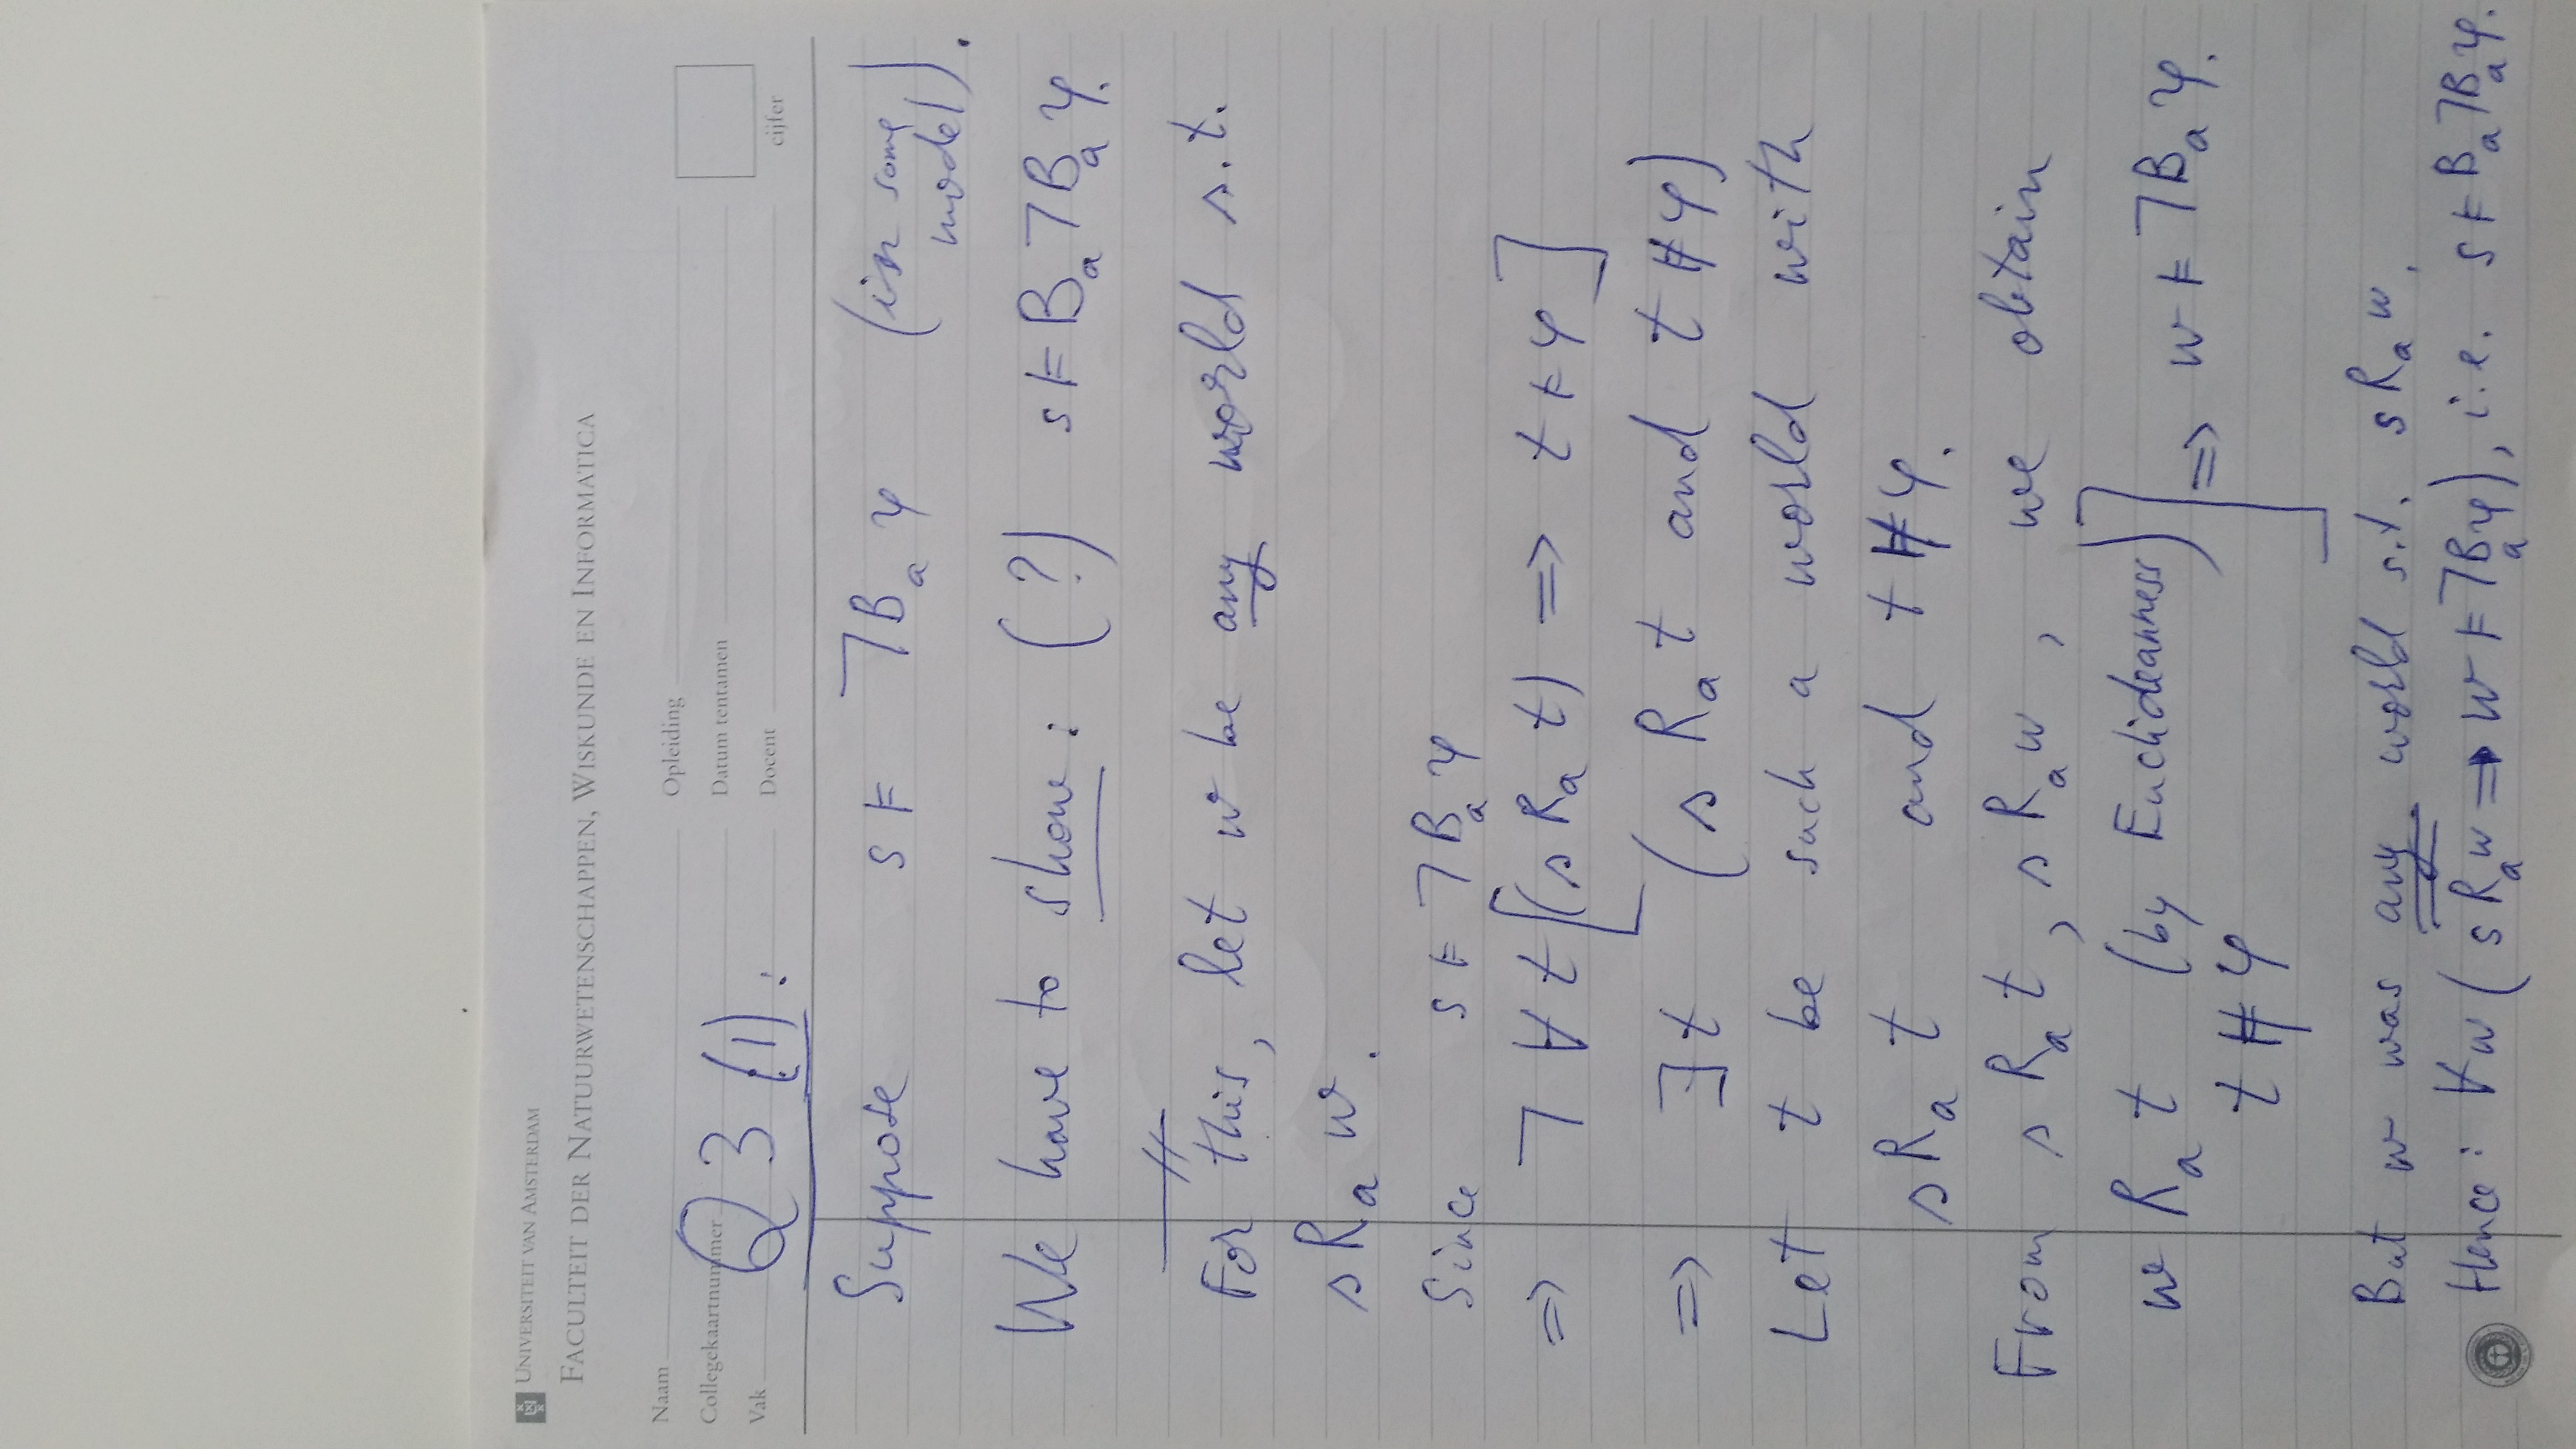 UNIVERSITEIT VAN AMSTERDAM
FACULTEIT DER NATUURWETENSCHAPPEN, WISKUNDE EN INFORMATICA
Naam
Opleiding
Collegekaartnummer
Datum tentamen
Vak
Docent
cijfer
Q3 (1):
Suppose s ⊨ ¬B_a φ (in some
model).
We have to show: (?) s ⊨ B_a ¬B_a φ.
For this, let w be any world s.t.
s R_a w.
Since s ⊨ ¬B_a φ
⇒ ¬∀t[(s R_a t) ⇒ t ⊨ φ]
⇒ ∃t (s R_a t and t ⊭ φ)
Let t be such a world with
s R_a t and t ⊭ φ.
From s R_a t, s R_a w, we obtain
w R_a t (by Euclideanness)] ⇒ w ⊨ ¬B_a φ.
t ⊭ φ
But w was any world s.t. s R_a w.
Hence: ∀w (s R_a w ⇒ w ⊨ ¬B_a φ), i.e. s ⊨ B_a ¬B_a φ.